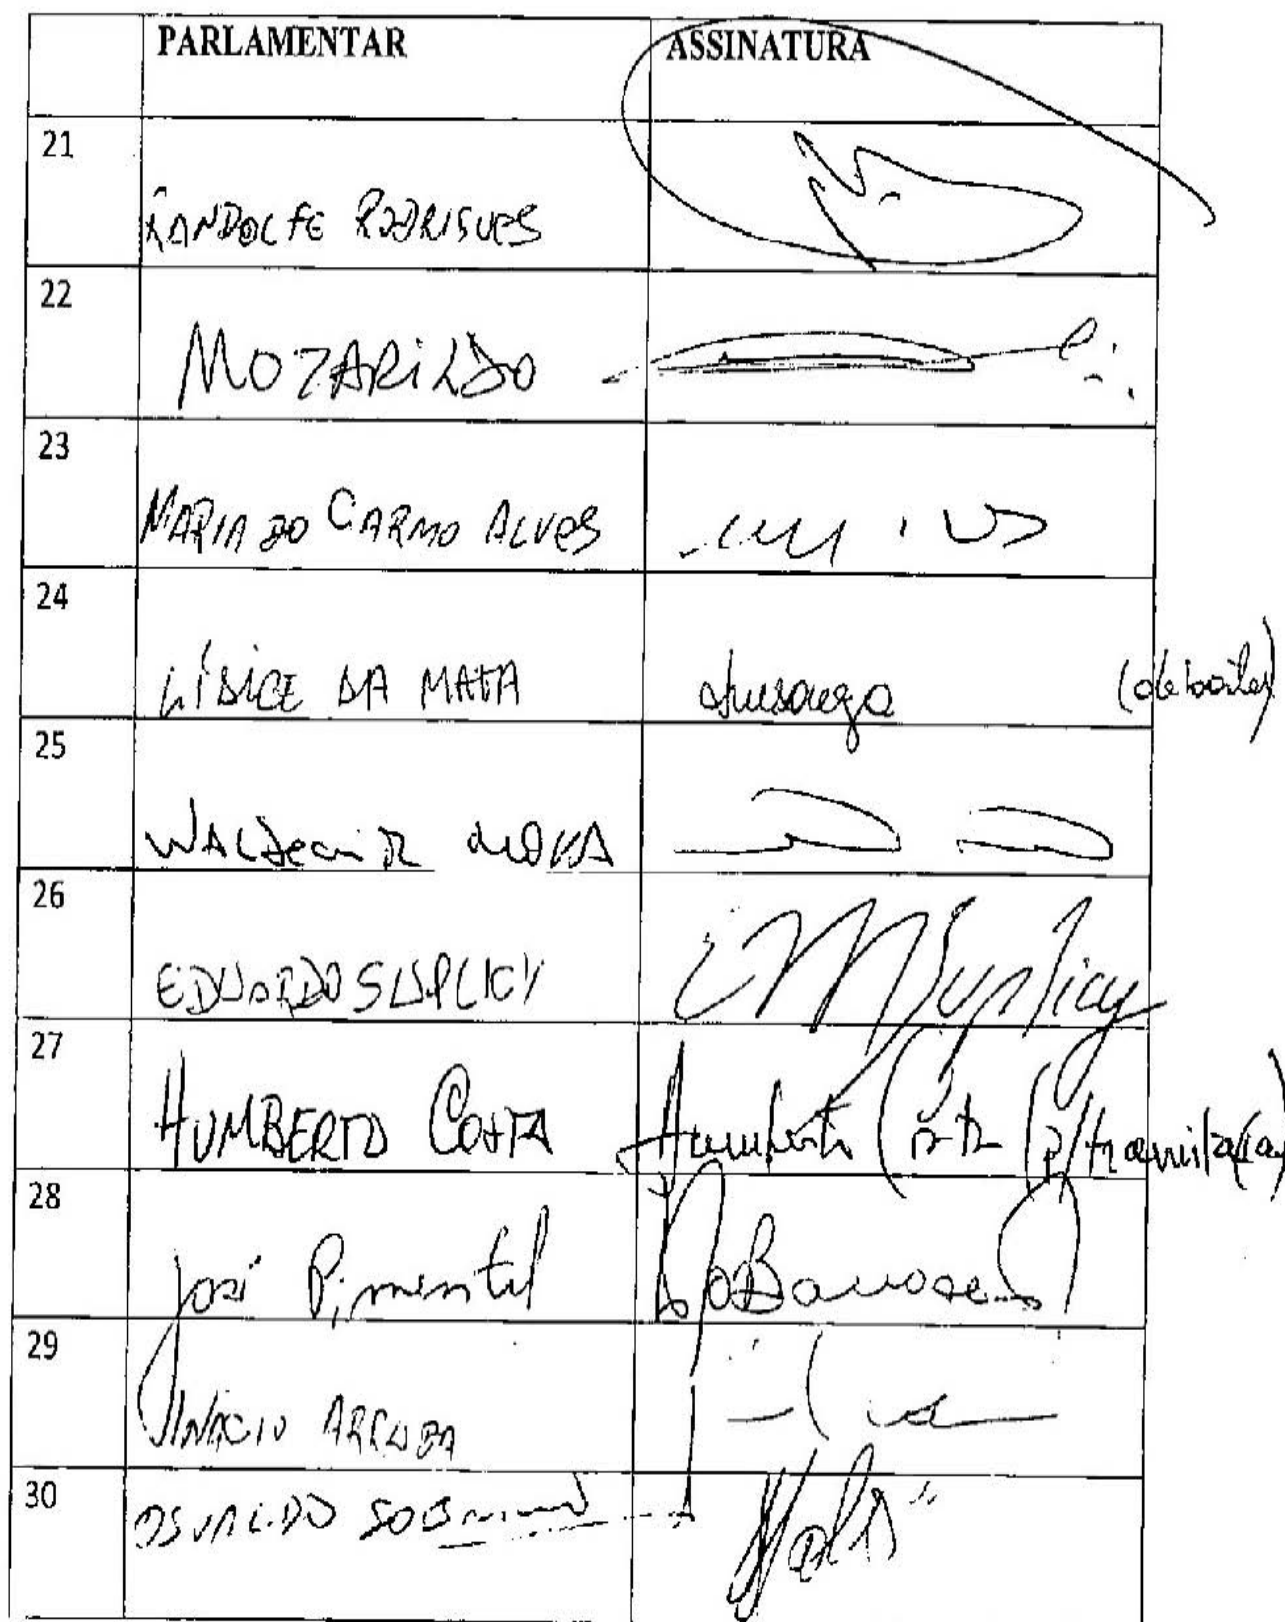 PARLAMENTAR ASSINATURA
21
RANDOLFE RODRIGUES
22
MOZARILDO
23
MARIA DO CARMO ALVES
24
LÍDICE DA MATA (debate)
25
WALDEMIR MOKA
26
EDUARDO SUPLICY Suplicy
27
HUMBERTO COSTA Humberto Costa (p/tramitação)
28
José Pimentel
29
INÁCIO ARRUDA
30
OSVALDO SOBRINHO